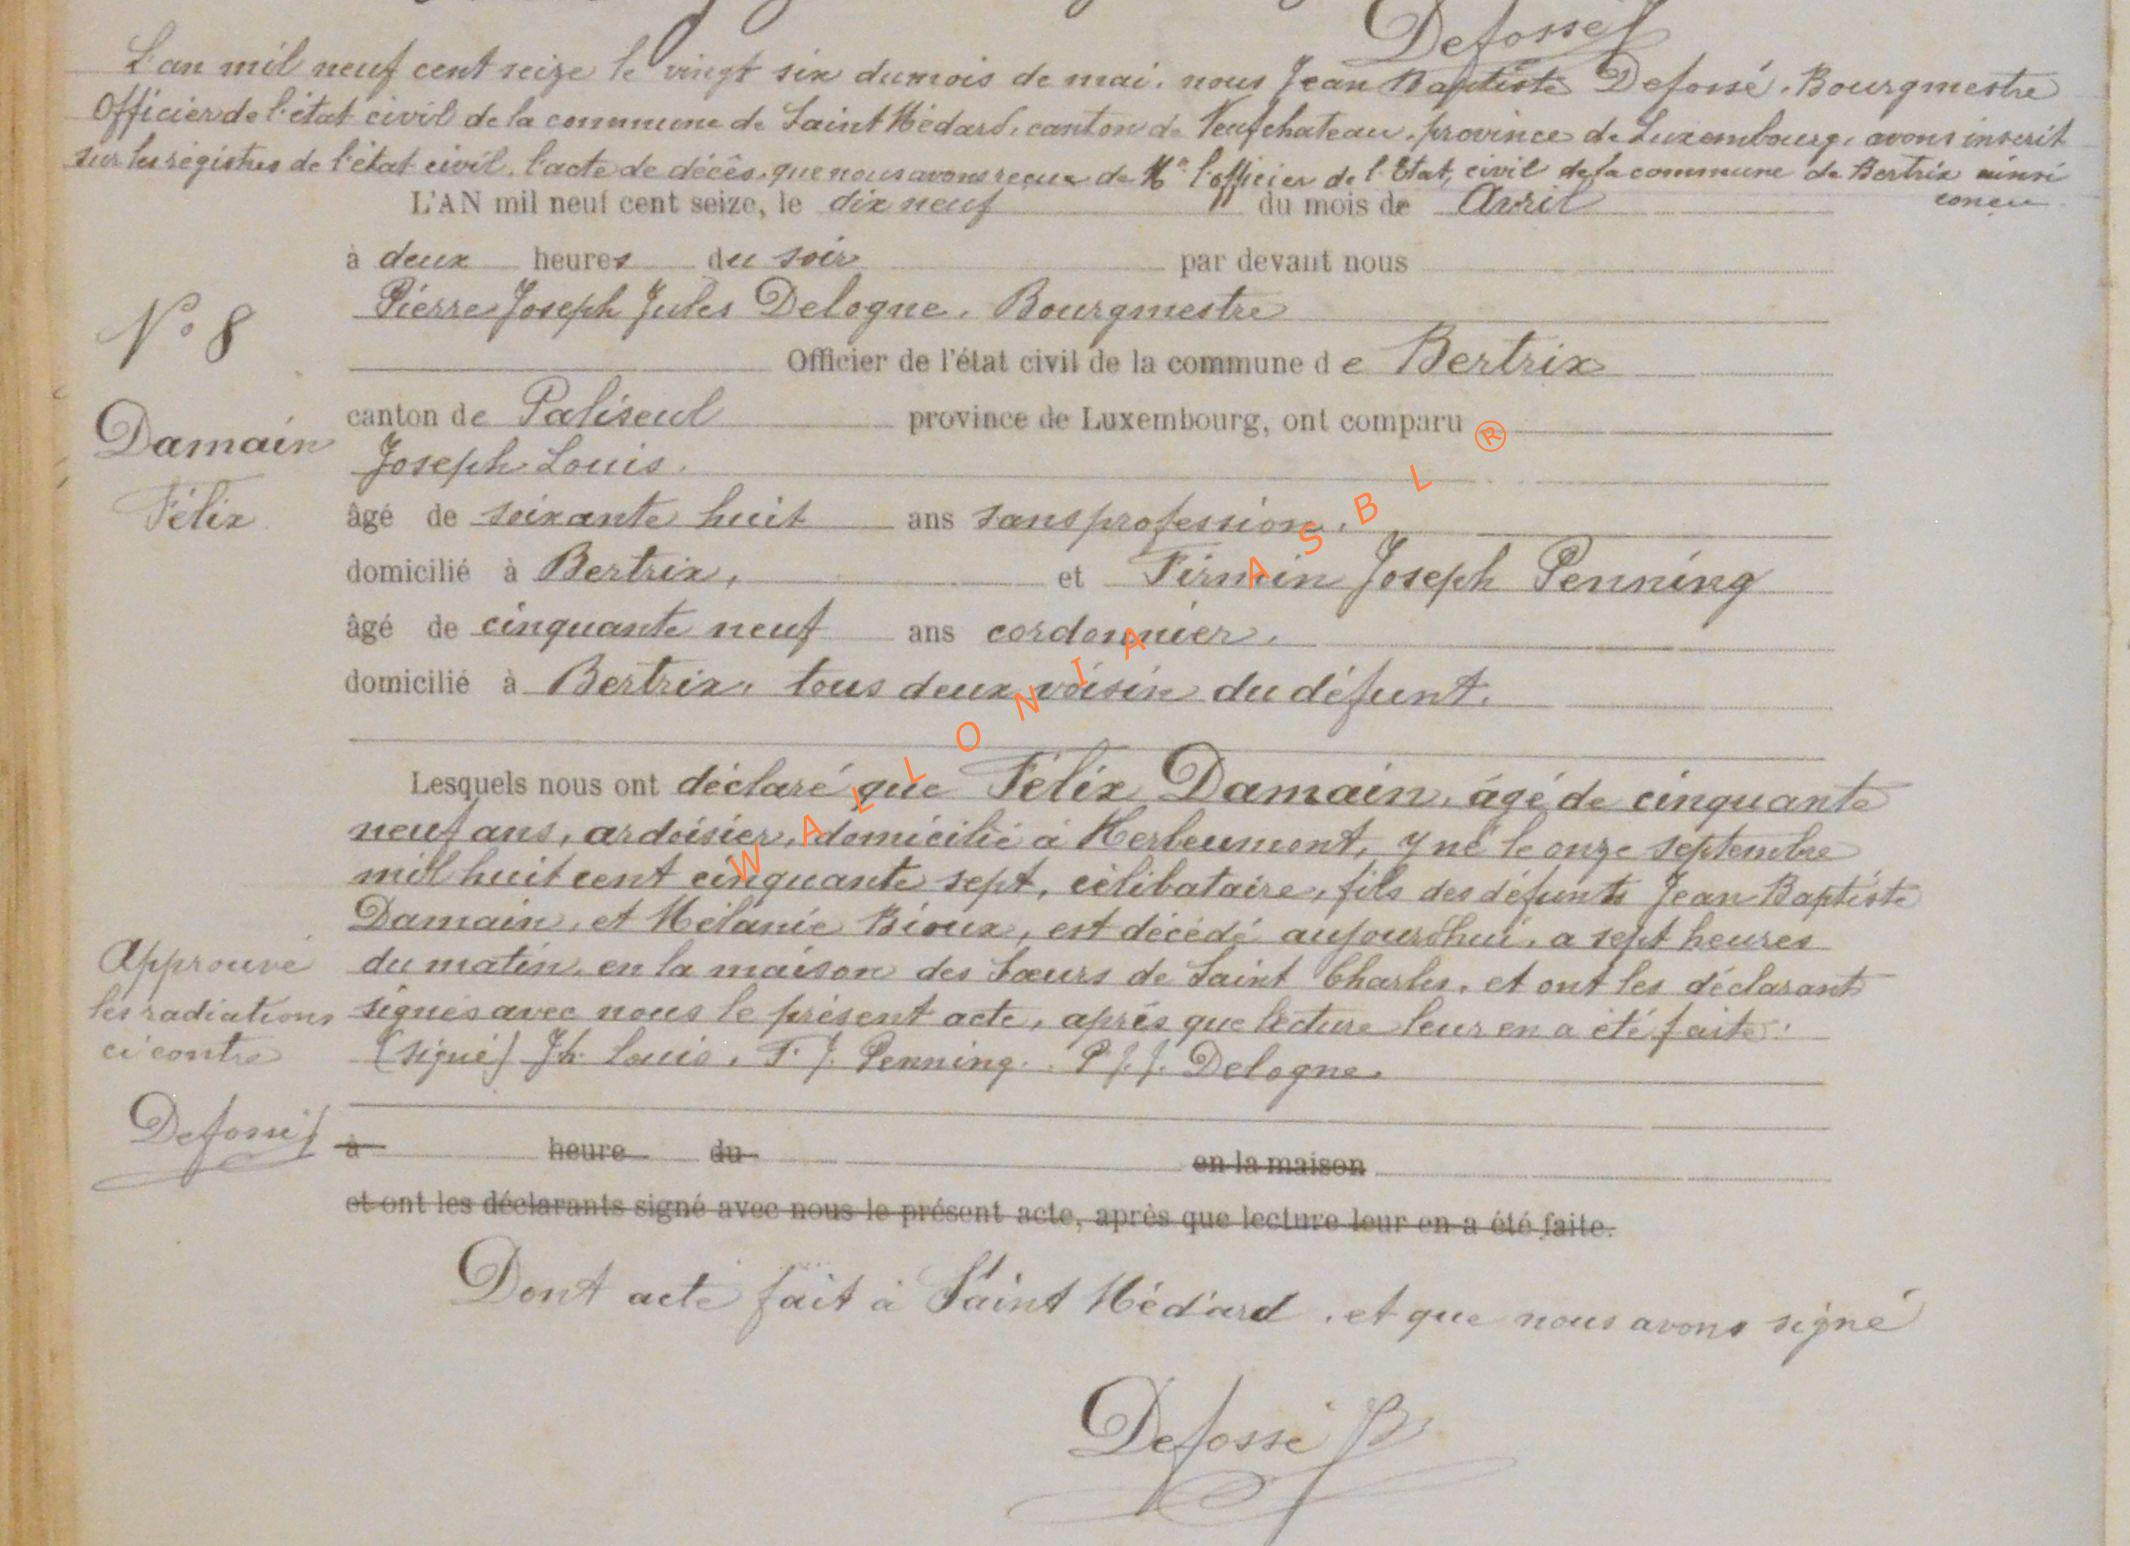 Defossé
L'an mil neuf cent seize le vingt six du mois de mai, nous Jean Baptiste Defossé, Bourgmestre
Officier de l'état civil de la commune de Saint Médard, canton de Neufchateau, province de Luxembourg, avons inscrit
sur les régistres de l'état civil, l'acte de décès, que nous avons reçue de Mr l'officier de l'Etat, civil de la commune de Bertrix ainsi
conçu
L'AN mil neuf cent seize, le dix neuf du mois de Avril
à deux heures du soir par devant nous
Pierre Joseph Jules Delogne, Bourgmestre
N° 8
Officier de l'état civil de la commune de Bertrix
canton de Paliseul province de Luxembourg, ont comparu
Damain
Félix
Joseph Louis.
âgé de soixante huit ans sans profession,
domicilié à Bertrix, et Firmin Joseph Penning
âgé de cinquante neuf ans cordonnier,
domicilié à Bertrix, tous deux voisin du défunt.
Lesquels nous ont déclaré que Félix Damain, âgé de cinquante
neuf ans, ardoisier, domicilié à Herbeumont, y né le onze septembre
mil huit cent cinquante sept, célibataire, fils des défunts Jean Baptiste
Damain, et Mélanie Bioux, est décédé aujourdhui, a sept heures
du matin, en la maison des Sœurs de Saint Charles, et ont les déclarants
signés avec nous le présent acte, après que lecture leur en a été faite.
(signé) Jh. Louis, F. J. Penning. P. J. J. Delogne.
Approuvé
les radiations
ci contre
Defossé
à heure du en la maison
et ont les déclarants signé avec nous le présent acte, après que lecture leur en a été faite.
Dont acte fait à Saint Médard, et que nous avons signé
Defossé JB
WALLONIA ASBL ®